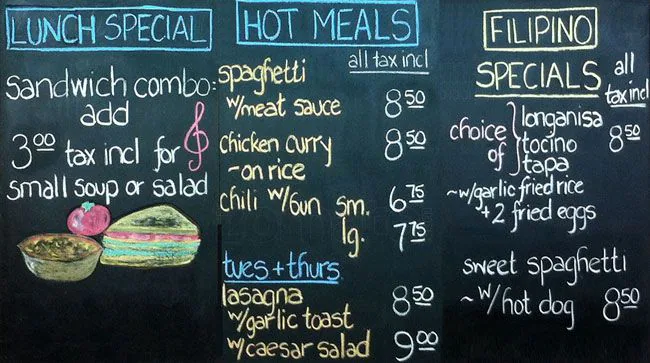 LUNCH SPECIAL
sandwich combo:
add
3.00 tax incl for
small soup or salad
HOT MEALS
all tax incl
spaghetti
w/meat sauce 8.50
chicken curry 8.50
~on rice
chili w/bun sm. 6.75
lg. 7.75
tues + thurs
lasagna 8.50
w/garlic toast
w/caesar salad 9.00
FILIPINO
SPECIALS all
tax incl
choice of longanisa
tocino 8.50
tapa
~w/garlic fried rice
+2 fried eggs
sweet spaghetti
~w/hot dog 8.50